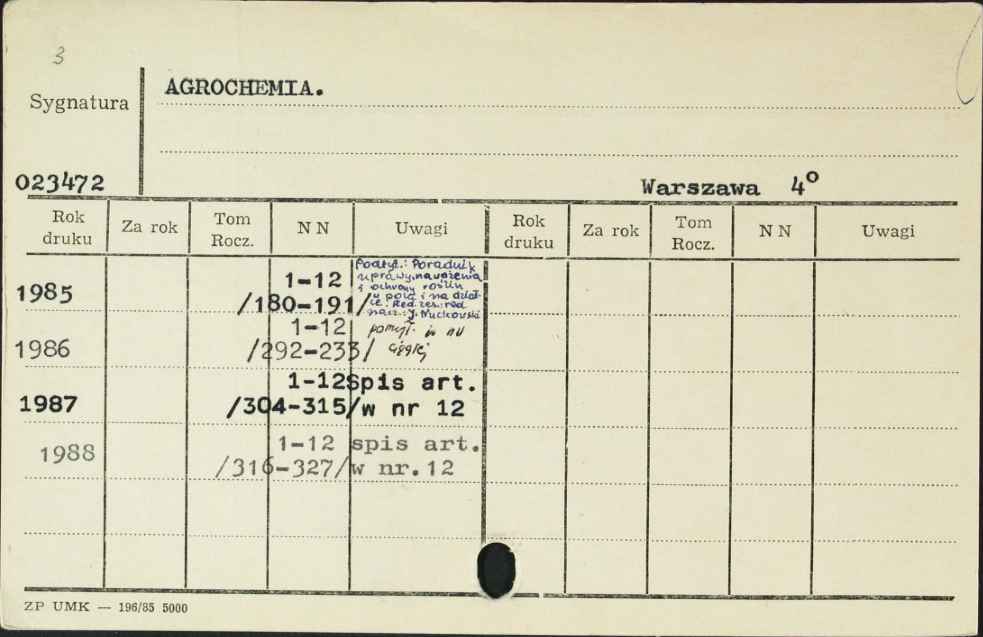 3
AGROCHEMIA.
Sygnatura
023472
Warszawa 4°
Rok druku Za rok Tom Rocz. NN Uwagi Rok druku Za rok Tom Rocz. NN Uwagi
Podtyt.: Poradnik
uprawy, nawożenia
i ochrony roślin
1985 1-12
w polu i na dział-
/180-191/
ce. Red. res.: red
nacz.: J.
1986 1-12 pomył. w nu
/292-233/
1987 1-12 spis art.
/304-315/ w nr 12
1988 1-12 spis art.
/316-327/ w nr.12
ZP UMK — 196/85 5000